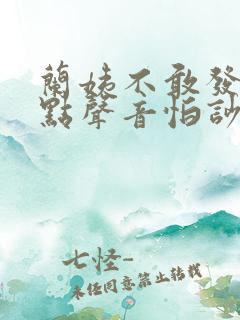 蘭姨不敢發
點聲音怕訬
七怪-
未经同意禁止转载